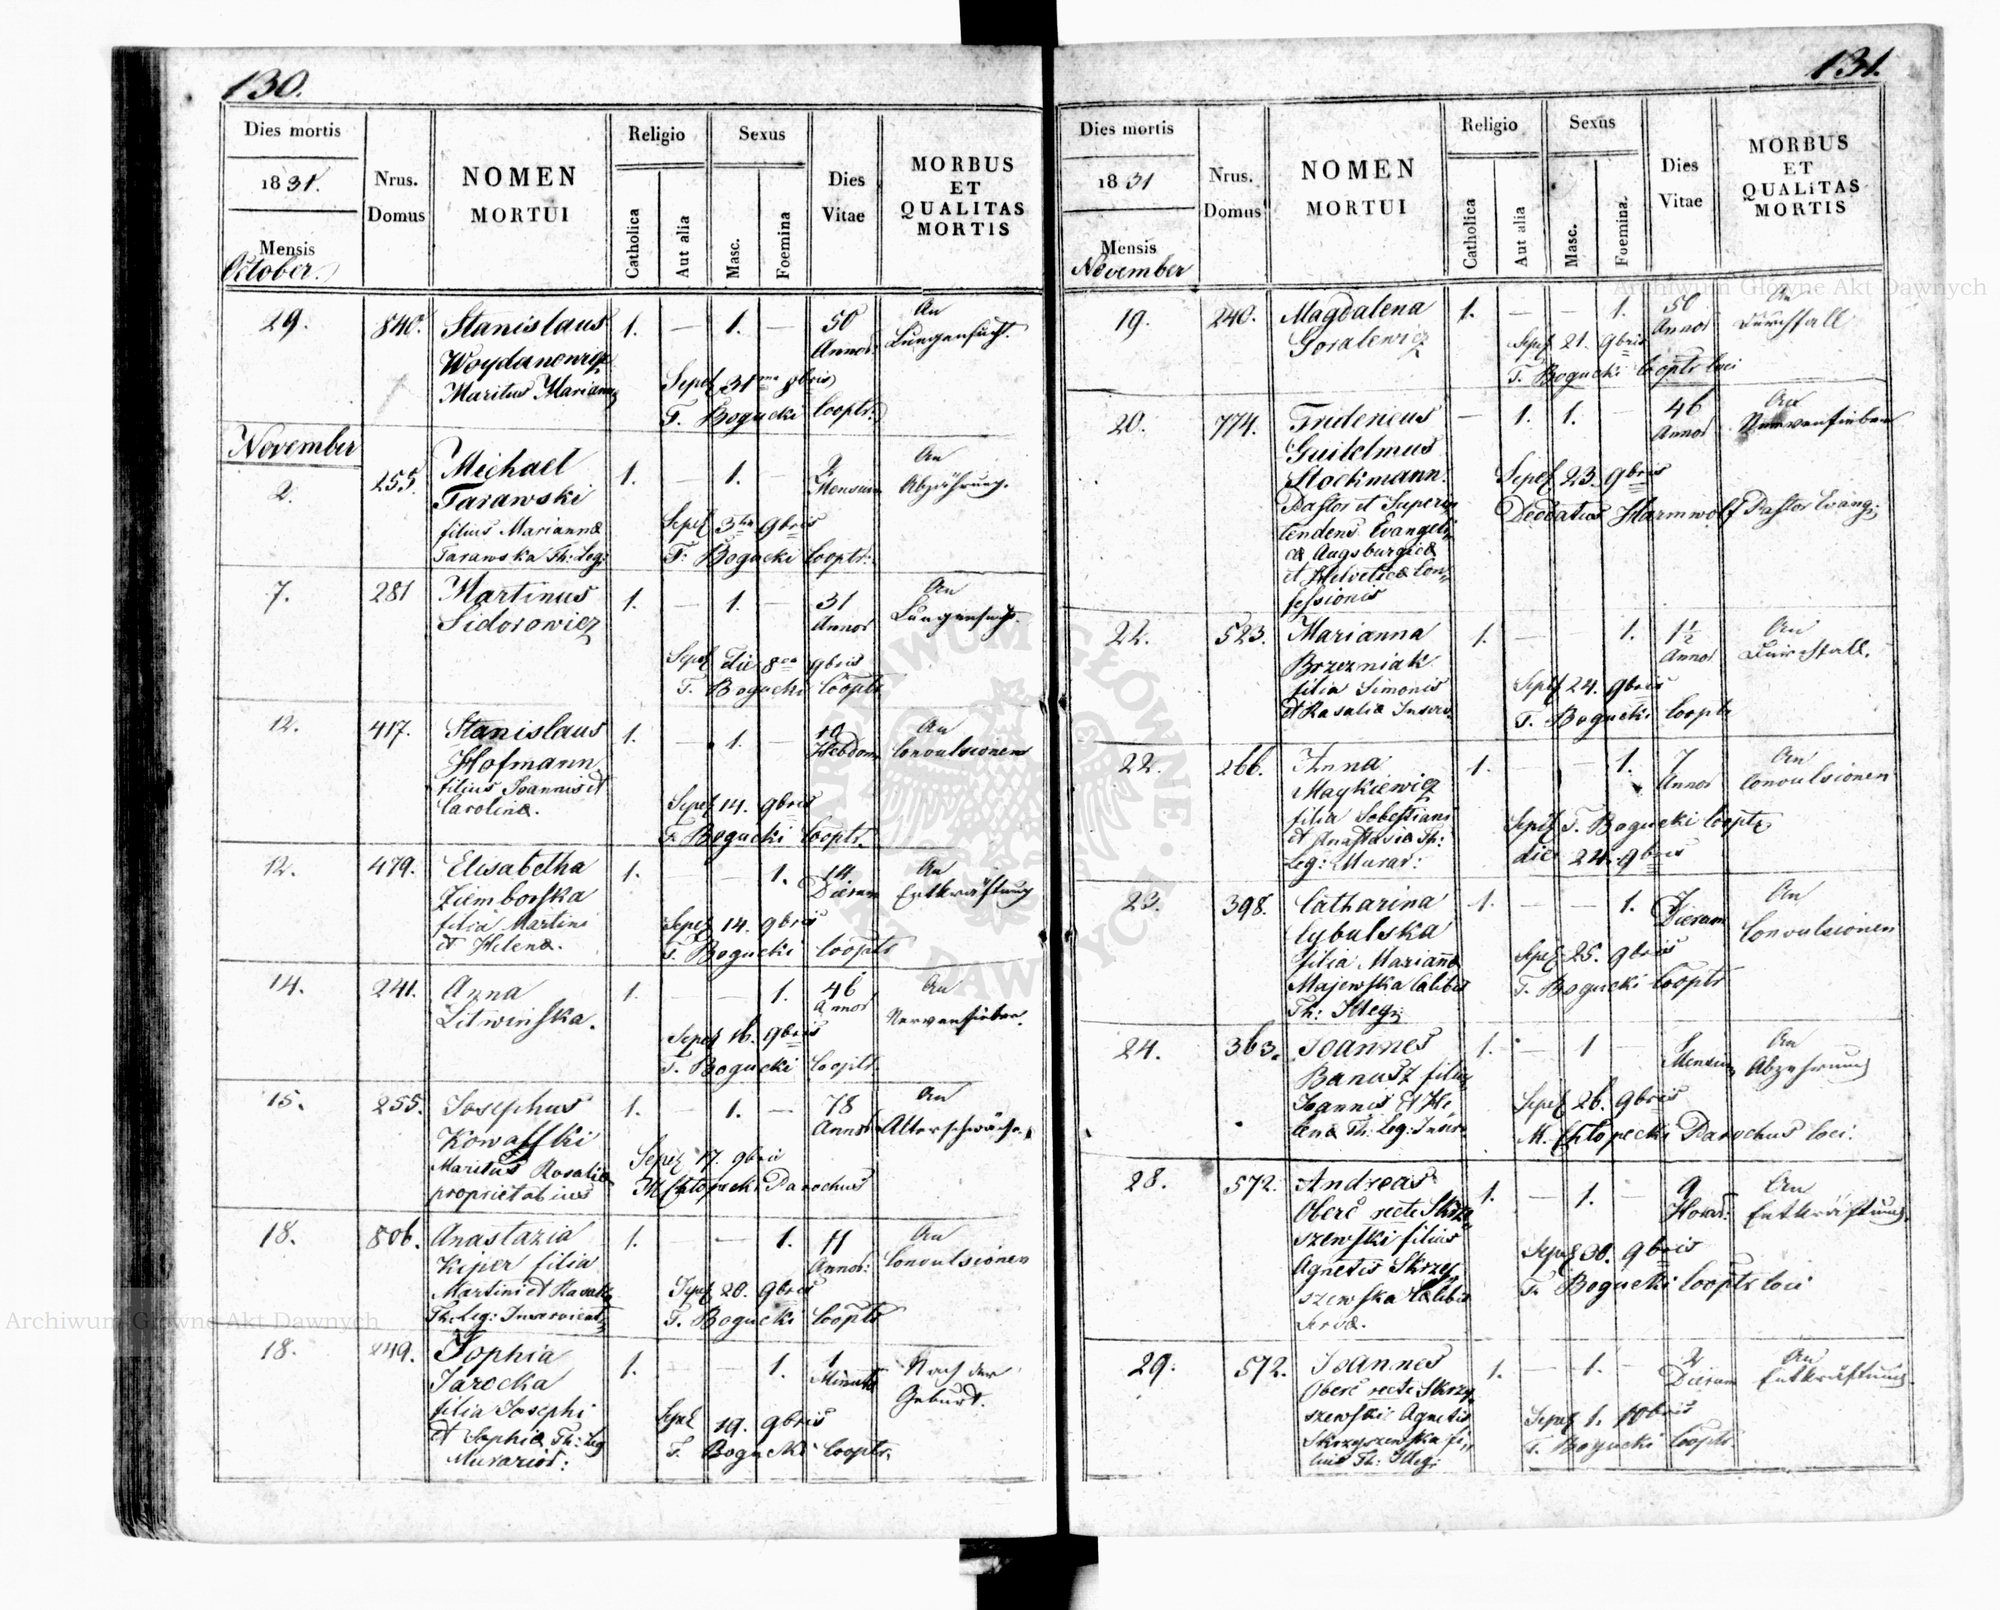 130.
Dies mortis
1831.
Mensis
October.
Nrus.
Domus
NOMEN
MORTUI
Religio
Catholica
Aut alia
Sexus
Masc.
Foemina
Dies
Vitae
MORBUS
ET
QUALITAS
MORTIS
29. 840. Stanislaus 1. — 1. — 50 An
Woydanowicz Annor. Lungensucht.
Maritus Marianna Sepel 31 8bris
F. Bogucki Cooptr.
November
2. 255. Michael 1. — 1. — 2 An
Tarawski Mensium Abzährung.
filius Marianna Sepel 3 9bris
Tarawska Th: Leg: F. Bogucki Cooptr.
7. 281 Martinus 1. — 1. — 31 An
Sidorowicz Annor Lungensucht.
Sepel die 8va 9bris
F. Bogucki Cooptr
12. 417. Stanislaus 1. — 1. — 10 An
Hofmann Hebdom Convulsionen
filius Joannis et Sepel 14. 9bris
Carolina. F. Bogucki Cooptr.
12. 479. Elisabetha 1. — — 1. 14 An
Ziemborska Dierum Entkräftung
filia Martini Sepel 14. 9bris
et Helena. F. Bogucki Cooptr
14. 241. Anna 1. — — 1. 46 An
Litwinska. Annor Nervenfieber.
Sepel 16. 9bris
F. Bogucki Cooptr.
15. 255. Josephus 1. — 1. — 78 An
Kowalski Annor Alterschwäche.
Maritus Rosalia Sepel 17. 9bris
proprietarius M Chlopecki Parochus
18. 806. Anastazia 1. — — 1. 11 An
Kijper filia Annor: Convulsionen
Martini et Sepel 20. 9bris
Th: Leg: F. Bogucki Cooptr
18. 249. Sophia 1. — — 1. 1 Nach der
Jarocka Minuta Geburt.
filia Josephi Sepel 19. 9bris
et Sophia Th: Leg F. Bogucki Cooptr.
Murarior:
131.
Dies mortis
1831
Mensis
November
Nrus.
Domus
NOMEN
MORTUI
Religio
Catholica
Aut alia
Sexus
Masc.
Foemina.
Dies
Vitae
MORBUS
ET
QUALITAS
MORTIS
19. 240. Magdalena 1. — — 1. 50 An
Goralewicz Annor Durchfall
Sepel 21. 9bris
F. Bogucki Cooptr loci
20. 774. Fridericus — 1. 1. — 46 An
Guilelmus Annor Nervenfieber
Stockmann. Sepel 23. 9bris
Pastor et Superin Deodatus Harmwolf Pastor Evang:
tendens Evangeli
ca Augsburgica
et Helvetica Con
fessionis
22. 523. Marianna 1. — 1. 1½ An
Brzezniak Annor Durchfall.
filia Simonis Sepel 24. 9bris
et Rosalia F. Bogucki Cooptr
22. 266. Anna 1. — — 1. 7 An
Maykiewicz Annor Convulsionen
filia Sobestiani Sepel F. Bogucki Cooptr
et Anastasia Th: die 24. 9bris
Leg: Murar:
23. 398. Catharina 1. — — 1. 7 An
Cybulska Dierum Convulsionen
filia Marianna Sepel 25. 9bris
Majewska Calibis F. Bogucki Cooptr
Th: Illeg:
24. 363. Joannes 1. — 1 — An
Banusz filius Mensium Abzehrung
Joannis et He Sepel 26. 9bris
lena Th: Leg: M. Chlopecki Parochus loci.
28. 572. Andreas 1. — 1. — 9 An
Oberc recte Skrzy Horar: Entkräftung.
szewski filius
Agnetis Skrzy Sepel 30. 9bris
szewska Calibis F. Bogucki Cooptr loci
29. 572. Joannes 1. — 1. — 2 An
Oberc recte Skrzy Dierum Entkräftung
szewski Agnetis Sepel 1. 10bris
Skrzyszewska fi F. Bogucki Cooptr
lius Th: Illeg:
ARCHIWUM GŁÓWNE AKT DAWNYCH
Archiwum Główne Akt Dawnych
Archiwum Główne Akt Dawnych